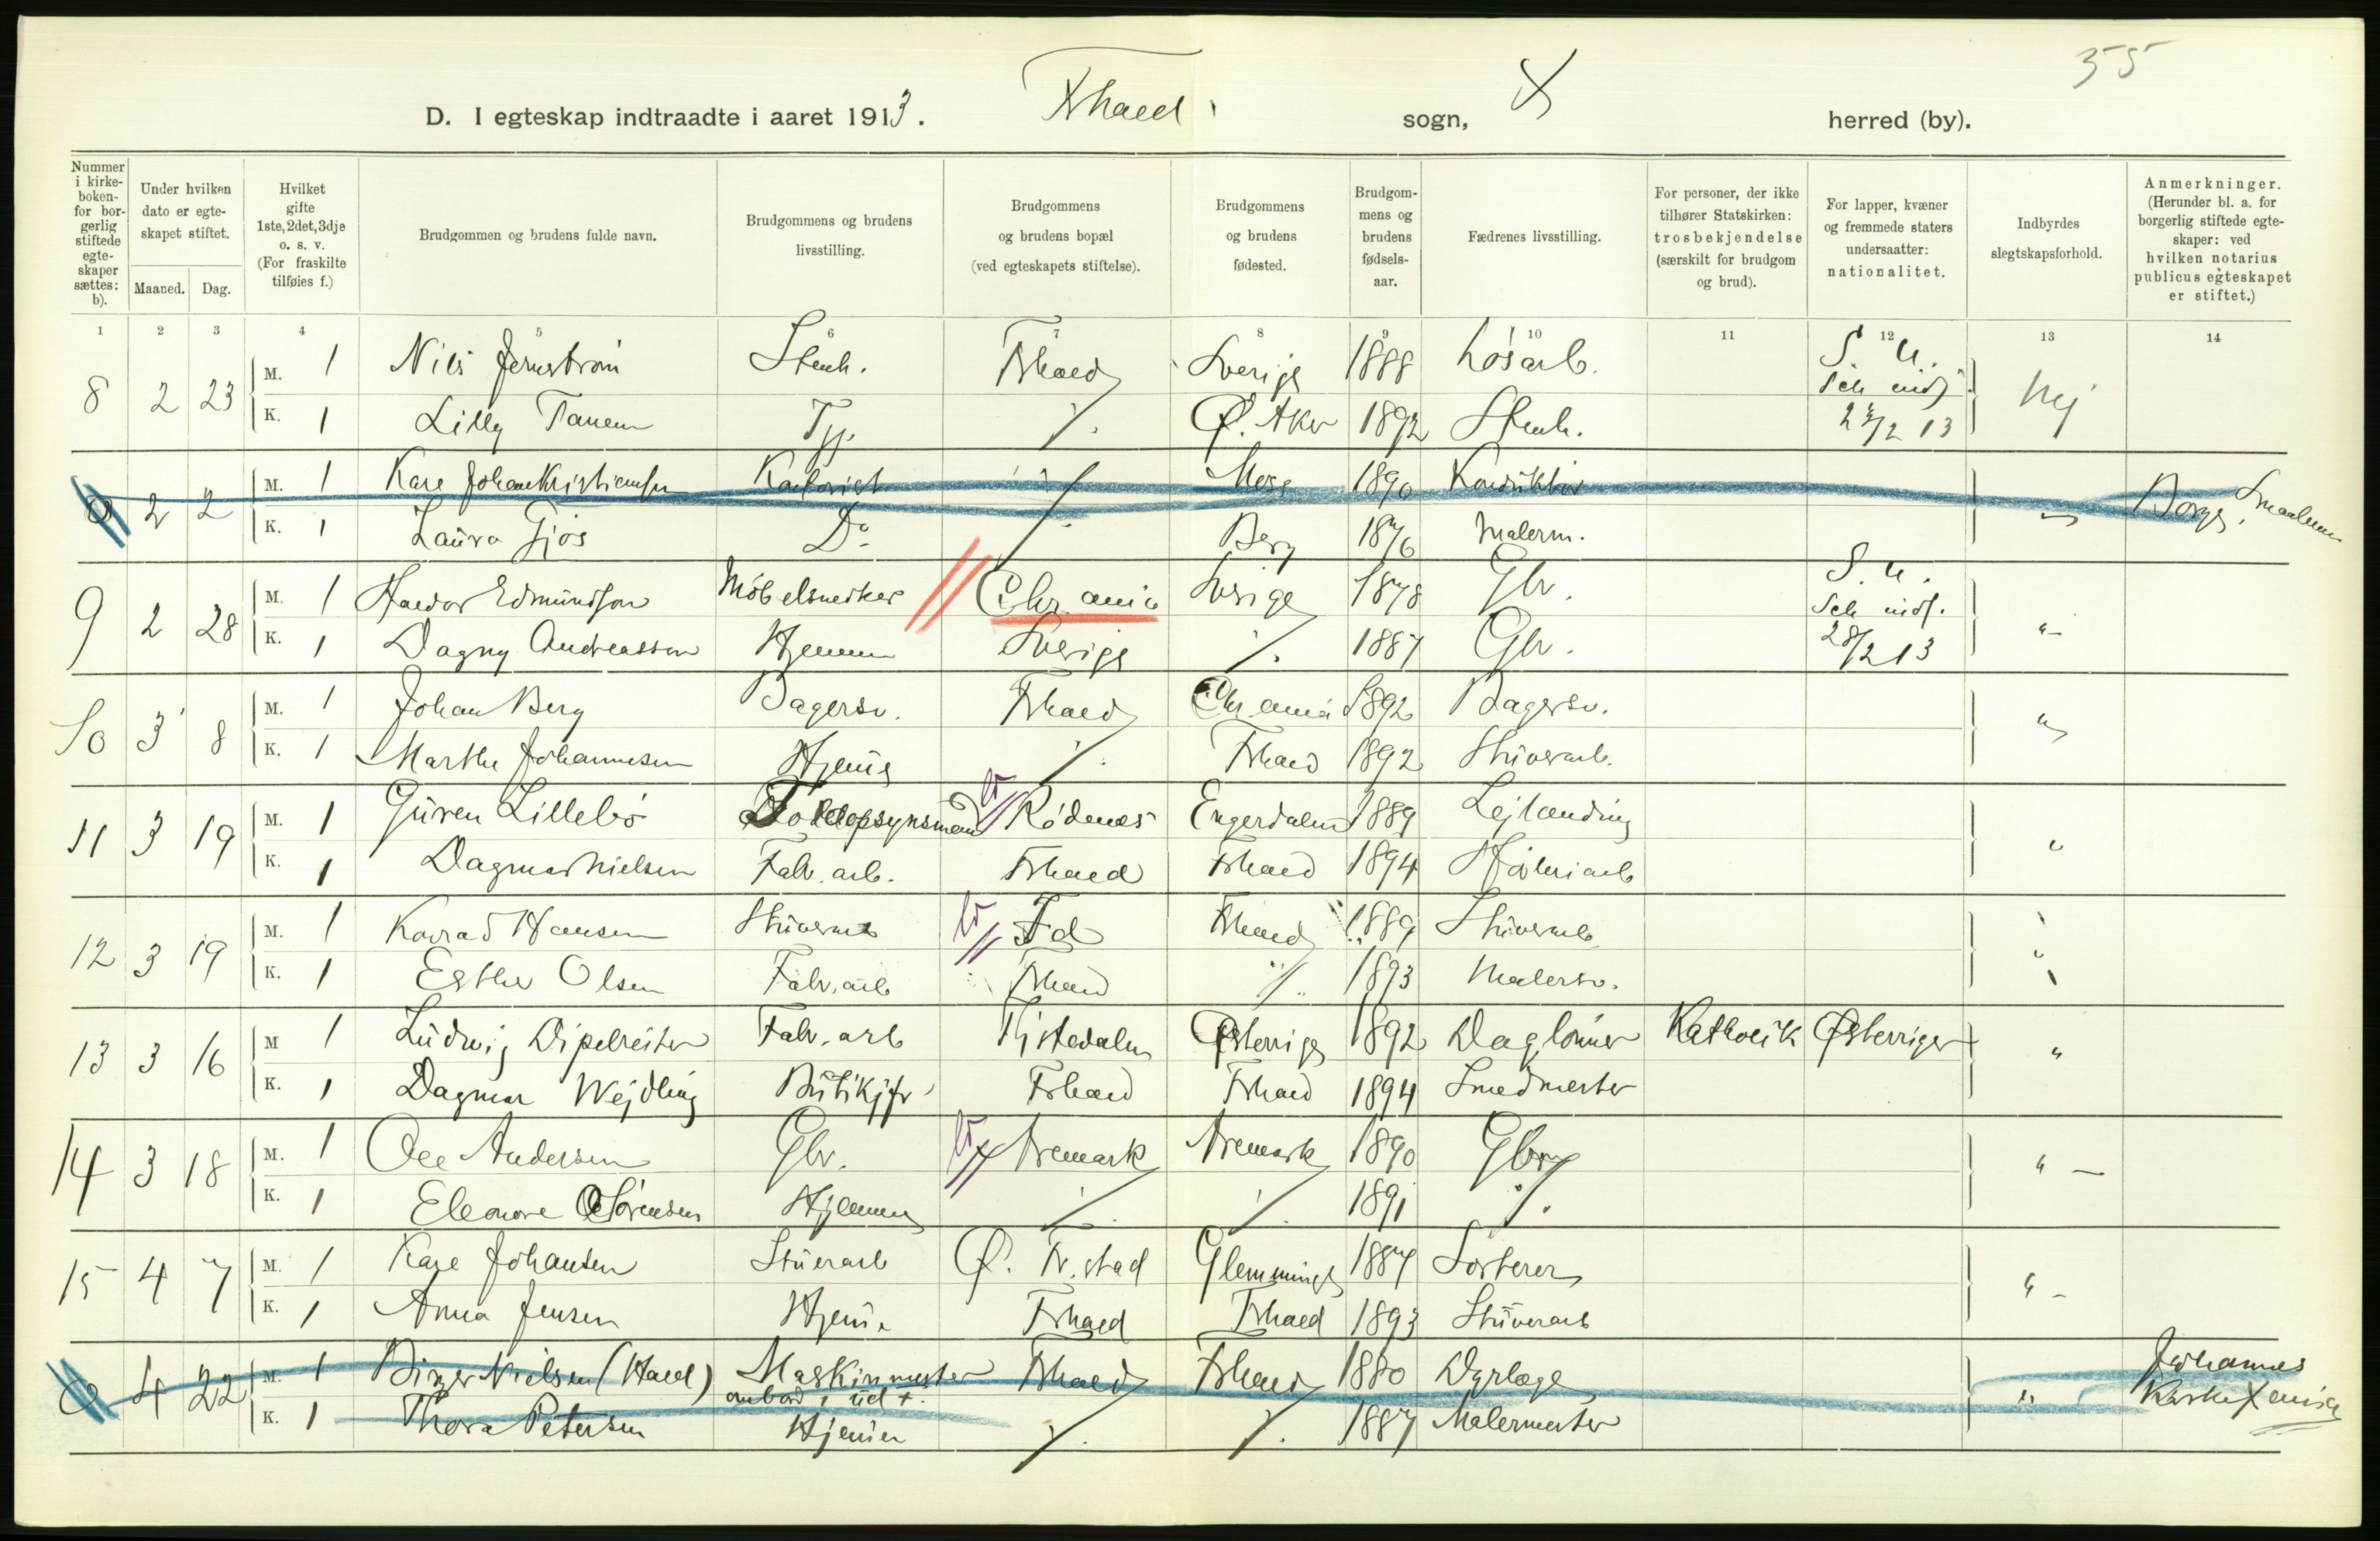 35
D. I egteskap indtraadte i aaret 1913. Frhald sogn, herred (by).
Nummer i kirke-boken- for bor-gerlig stiftede egte-skaper sættes: b).
Under hvilken dato er egte-skapet stiftet.
Maaned. Dag.
Hvilket gifte 1ste, 2det, 3dje o. s. v. (For fraskilte tilføies f.)
Brudgommen og brudens fulde navn.
Brudgommens og brudens livsstilling.
Brudgommens og brudens bopæl (ved egteskapets stiftelse).
Brudgommens og brudens fødested.
Brudgom-mens og brudens fødsels-aar.
Fædrenes livsstilling.
For personer, der ikke tilhører Statskirken: trosbekjendelse (særskilt for brudgom og brud).
For lapper, kvæner og fremmede staters undersaatter: nationalitet.
Indbyrdes slegtskapsforhold.
Anmerkninger. (Herunder bl. a. for borgerlig stiftede egte-skaper: ved hvilken notarius publicus egteskapet er stiftet.)
1 2 3 4 5 6 7 8 9 10 11 12 13 14
8 2 23 M. 1 Nils Jernström Stenh. Frhald Sverige 1888 Løsarb. S. U. Nej
K. 1 Lilly Tanem Typ. Ø. Aker 1892 Stenh. 22/2 13
0 2 2 M. 1 Karl Johan Kristiansen Moss 1890 Konduktør Borge, Smaalenene
K. 1 Laura Gjøs Do Berg 1876 Malerm.
9 2 28 M. 1 Haldor Edmundson Møbelsnedker Chr.ania Sverige 1878 Gbr. S. U.
K. 1 Dagny Andreasson Hjemme Sverige 1887 Gbr. 28/2 13
10 3 8 M. 1 Johan Berg Bagersv. Frhald Chr.ania 1892 Bagersv.
K. 1 Marthe Johannesen Hjemme Frhald 1892 Stuverarb.
11 3 19 M. 1 Guren Lillebö Toldopsynsmand Rødenes Engerdalen 1889 Lejlænding
K. 1 Dagmar Nielsen Fabr. arb. Frhald Frhald 1894 Høvleriarb
12 3 19 M. 1 Konrad Hansen Stuverarb Id Frhald 1889 Stuverarb
K. 1 Esther Olsen Fabr. arb Frhald 1893 Malersv.
13 3 16 M 1 Ludwig Dipelreiter Fabr. arb Tistedalen Østerrige 1892 Dagløner Katholik Østerriger
K. 1 Dagmar Wejdling Butikjfr Frhald Frhald 1894 Smedmester
14 3 18 M. 1 Ole Andersen Gbr. Aremark Aremark 1890 Gbr
K. 1 Eleonore Sørensen Hjemme 1891
15 4 7 M. 1 Karl Johansen Stuerarb Ø. Fr.stad Glemminge 1887 Sorterer
K. 1 Anna Jensen Hjemme Frhald Frhald 1893 Stuverarb
0 4 22 M. 1 Birger Nielsen (Hald) Maskinmester Frhald Frhald 1880 Dyrlæge Johannes
ombord i
K. 1 Thora Petersen Hjemme 1887 Malermester Kirke Xania